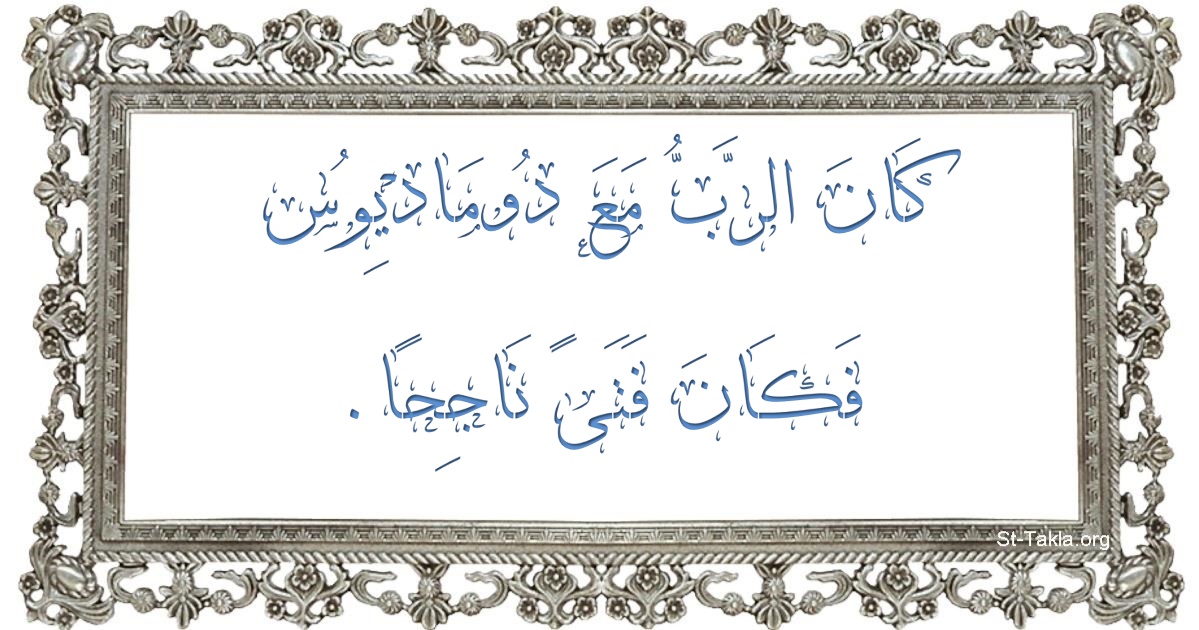 كَانَ الرَّبُّ مَعَ دُومَادْيِوُس
فَكَانَ فَتَىً نَاجِحًا .
St-Takla.org